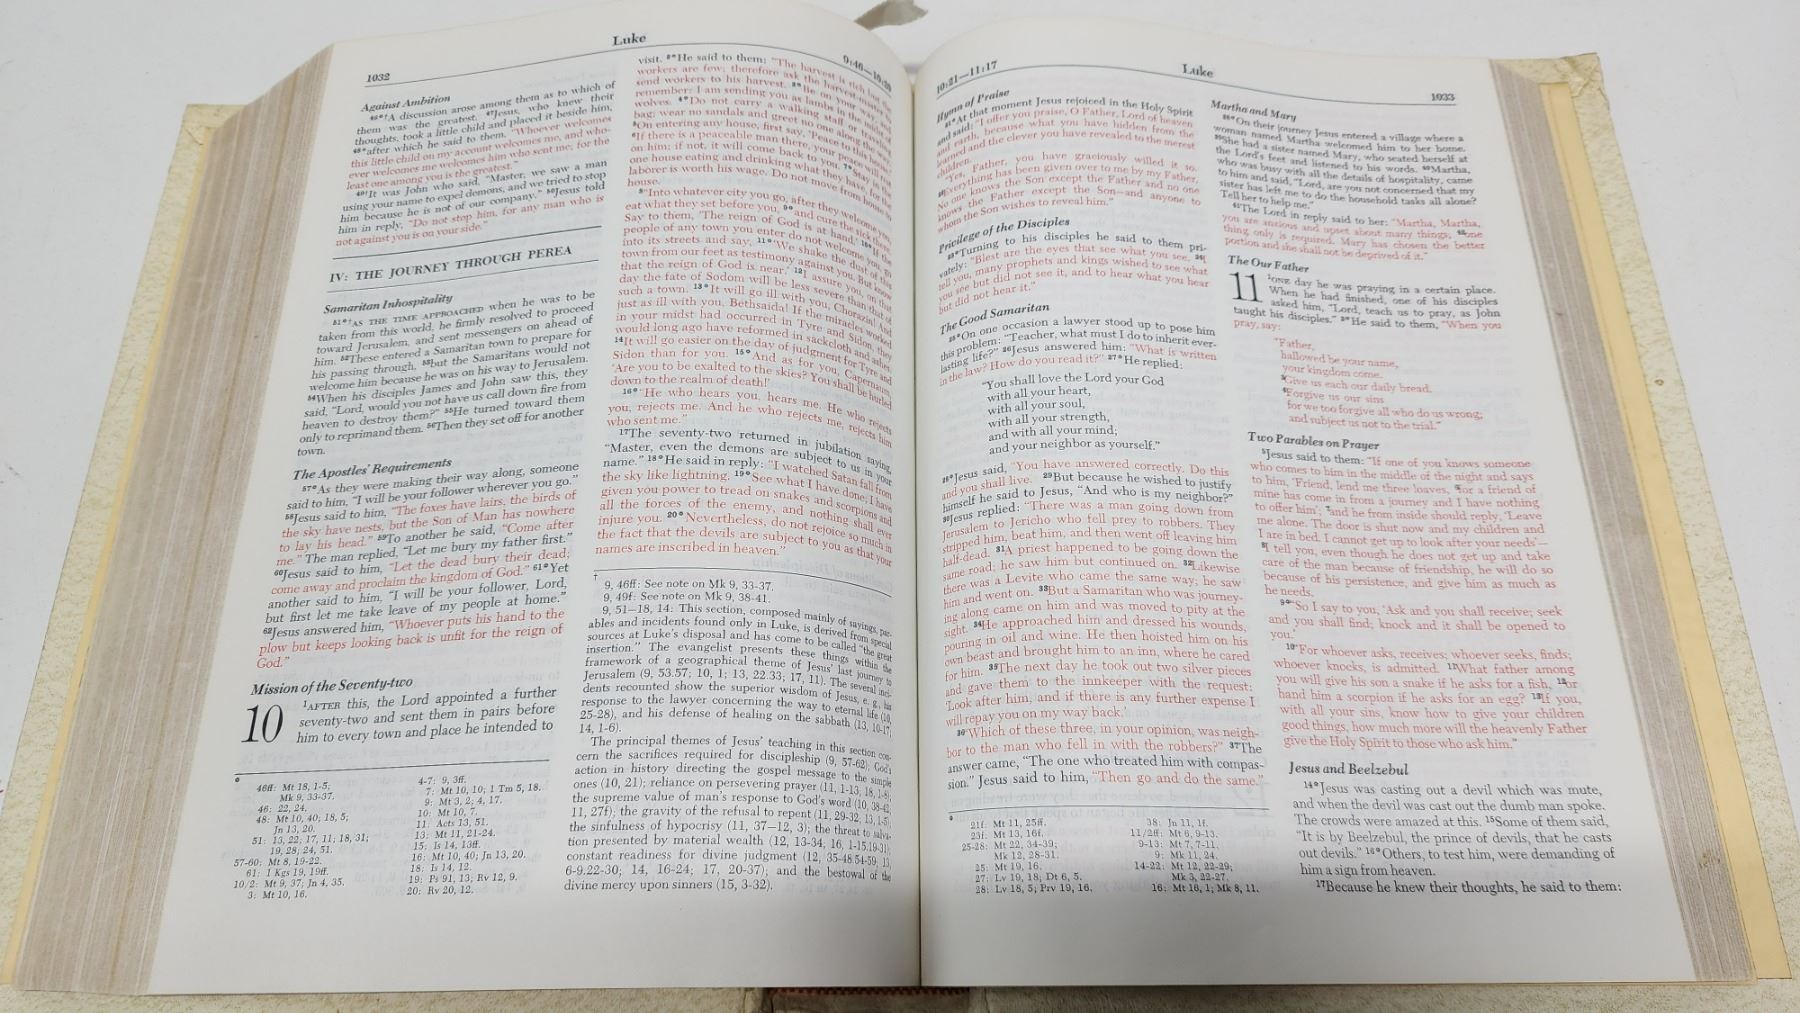 1032
Luke
9:46—10:20
Against Ambition
46*†A discussion arose among them as to which of
them was the greatest. 47Jesus, who knew their
thoughts, took a little child and placed it beside him,
48*after which he said to them, "Whoever welcomes
this little child on my account welcomes me, and who-
ever welcomes me welcomes him who sent me; for the
least one among you is the greatest."
49†It was John who said, "Master, we saw a man
using your name to expel demons, and we tried to stop
him because he is not of our company." 50Jesus told
him in reply, "Do not stop him, for any man who is
not against you is on your side."
IV: THE JOURNEY THROUGH PEREA
Samaritan Inhospitality
51*†AS THE TIME APPROACHED when he was to be
taken from this world, he firmly resolved to proceed
toward Jerusalem, and sent messengers on ahead of
him. 52These entered a Samaritan town to prepare for
his passing through, 53but the Samaritans would not
welcome him because he was on his way to Jerusalem.
54When his disciples James and John saw this, they
said, "Lord, would you not have us call down fire from
heaven to destroy them?" 55He turned toward them
only to reprimand them. 56Then they set off for another
town.
The Apostles' Requirements
57*As they were making their way along, someone
said to him, "I will be your follower wherever you go."
58Jesus said to him, "The foxes have lairs, the birds of
the sky have nests, but the Son of Man has nowhere
to lay his head." 59To another he said, "Come after
me." The man replied, "Let me bury my father first."
60Jesus said to him, "Let the dead bury their dead;
come away and proclaim the kingdom of God." 61*Yet
another said to him, "I will be your follower, Lord,
but first let me take leave of my people at home."
62Jesus answered him, "Whoever puts his hand to the
plow but keeps looking back is unfit for the reign of
God."
Mission of the Seventy-two
10 1AFTER this, the Lord appointed a further
seventy-two and sent them in pairs before
him to every town and place he intended to
*
46ff: Mt 18, 1-5;
Mk 9, 33-37.
46: 22, 24.
48: Mt 10, 40; 18, 5;
Jn 13, 20.
51: 13, 22; 17, 11; 18, 31;
19, 28; 24, 51.
57-60: Mt 8, 19-22.
61: 1 Kgs 19, 19ff.
10/2: Mt 9, 37; Jn 4, 35.
3: Mt 10, 16.
4-7: 9, 3ff.
7: Mt 10, 10; 1 Tm 5, 18.
9: Mt 3, 2; 4, 17.
10: Mt 10, 7.
11: Acts 13, 51.
13: Mt 11, 21-24.
15: Is 14, 13ff.
16: Mt 10, 40; Jn 13, 20.
18: Is 14, 12.
19: Ps 91, 13; Rv 12, 9.
20: Rv 20, 12.
visit. 2*He said to them: "The harvest is rich but the
workers are few; therefore ask the harvest-master to
send workers to his harvest. 3*Be on your way, and
remember: I am sending you as lambs in the midst of
wolves. 4*Do not carry a walking staff or traveling
bag; wear no sandals and greet no one along the way.
5On entering any house, first say, 'Peace to this house.'
6If there is a peaceable man there, your peace will rest
on him; if not, it will come back to you. 7*Stay in the
one house eating and drinking what they have, for the
laborer is worth his wage. Do not move from house to
house.
8"Into whatever city you go, after they welcome you,
eat what they set before you, 9*and cure the sick there.
Say to them, 'The reign of God is at hand.' 10*If the
people of any town you enter do not welcome you, go
into its streets and say, 11*'We shake the dust of this
town from our feet as testimony against you. But know
that the reign of God is near.' 12I assure you, on that
day the fate of Sodom will be less severe than that of
such a town. 13*It will go ill with you, Chorazin! And
just as ill with you, Bethsaida! If the miracles worked
in your midst had occurred in Tyre and Sidon, they
would long ago have reformed in sackcloth and ashes.
14It will go easier on the day of judgment for Tyre and
Sidon than for you. 15*And as for you, Capernaum,
'Are you to be exalted to the skies? You shall be hurled
down to the realm of death!'
16*"He who hears you, hears me. He who rejects
you, rejects me. And he who rejects me, rejects him
who sent me."
17The seventy-two returned in jubilation saying,
"Master, even the demons are subject to us in your
name." 18*He said in reply: "I watched Satan fall from
the sky like lightning. 19*See what I have done; I have
given you power to tread on snakes and scorpions and
all the forces of the enemy, and nothing shall ever
injure you. 20*Nevertheless, do not rejoice so much in
the fact that the devils are subject to you as that your
names are inscribed in heaven."
†
9, 46ff: See note on Mk 9, 33-37.
9, 49f: See note on Mk 9, 38-41.
9, 51—18, 14: This section, composed mainly of sayings, par-
ables and incidents found only in Luke, is derived from special
sources at Luke's disposal and has come to be called "the great
insertion." The evangelist presents these things within the
framework of a geographical theme of Jesus' last journey to
Jerusalem (9, 53.57; 10, 1; 13, 22.33; 17, 11). The several inci-
dents recounted show the superior wisdom of Jesus, e. g., his
response to the lawyer concerning the way to eternal life (10,
25-28), and his defense of healing on the sabbath (13, 10-17;
14, 1-6).
The principal themes of Jesus' teaching in this section con-
cern the sacrifices required for discipleship (9, 57-62); God's
action in history directing the gospel message to the simple
ones (10, 21); reliance on persevering prayer (11, 1-13; 18, 1-8);
the supreme value of man's response to God's word (10, 38-42;
11, 27f); the gravity of the refusal to repent (11, 29-32; 13, 1-5);
the sinfulness of hypocrisy (11, 37—12, 3); the threat to salva-
tion presented by material wealth (12, 13-34; 16, 1-15.19-31);
constant readiness for divine judgment (12, 35-48.54-59; 13,
6-9.22-30; 14, 16-24; 17, 20-37); and the bestowal of the
divine mercy upon sinners (15, 3-32).
10:21—11:17
Luke
1033
Hymn of Praise
21*At that moment Jesus rejoiced in the Holy Spirit
and said: "I offer you praise, O Father, Lord of heaven
and earth, because what you have hidden from the
learned and the clever you have revealed to the merest
children.
"Yes, Father, you have graciously willed it so.
22Everything has been given over to me by my Father.
No one knows the Son except the Father and no one
knows the Father except the Son—and anyone to
whom the Son wishes to reveal him."
Privilege of the Disciples
23*Turning to his disciples he said to them pri-
vately: "Blest are the eyes that see what you see. 24I
tell you, many prophets and kings wished to see what
you see but did not see it, and to hear what you hear
but did not hear it."
The Good Samaritan
25*On one occasion a lawyer stood up to pose him
this problem: "Teacher, what must I do to inherit ever-
lasting life?" 26Jesus answered him: "What is written
in the law? How do you read it?" 27*He replied:
"You shall love the Lord your God
with all your heart,
with all your soul,
with all your strength,
and with all your mind;
and your neighbor as yourself."
28*Jesus said, "You have answered correctly. Do this
and you shall live. 29But because he wished to justify
himself he said to Jesus, "And who is my neighbor?"
30Jesus replied: "There was a man going down from
Jerusalem to Jericho who fell prey to robbers. They
stripped him, beat him, and then went off leaving him
half-dead. 31A priest happened to be going down the
same road; he saw him but continued on. 32Likewise
there was a Levite who came the same way; he saw
him and went on. 33But a Samaritan who was journey-
ing along came on him and was moved to pity at the
sight. 34He approached him and dressed his wounds,
pouring in oil and wine. He then hoisted him on his
own beast and brought him to an inn, where he cared
for him. 35The next day he took out two silver pieces
and gave them to the innkeeper with the request:
'Look after him, and if there is any further expense I
will repay you on my way back.'
36"Which of these three, in your opinion, was neigh-
bor to the man who fell in with the robbers?" 37The
answer came, "The one who treated him with compas-
sion." Jesus said to him, "Then go and do the same."
*
21f: Mt 11, 25ff.
23f: Mt 13, 16f.
25-28: Mt 22, 34-39;
Mk 12, 28-31.
25: Mt 19, 16.
27: Lv 19, 18; Dt 6, 5.
28: Lv 18, 5; Prv 19, 16.
38: Jn 11, 1f.
11/2ff: Mt 6, 9-13.
9-13: Mt 7, 7-11.
9: Mk 11, 24.
14-22: Mt 12, 22-29;
Mk 3, 22-27.
16: Mt 16, 1; Mk 8, 11.
Martha and Mary
38*On their journey Jesus entered a village where a
woman named Martha welcomed him to her home.
39She had a sister named Mary, who seated herself at
the Lord's feet and listened to his words. 40Martha,
who was busy with all the details of hospitality, came
to him and said, "Lord, are you not concerned that my
sister has left me to do the household tasks all alone?
Tell her to help me."
41The Lord in reply said to her: "Martha, Martha,
you are anxious and upset about many things; 42one
thing only is required. Mary has chosen the better
portion and she shall not be deprived of it."
The Our Father
11 1ONE day he was praying in a certain place.
When he had finished, one of his disciples
asked him, "Lord, teach us to pray, as John
taught his disciples." 2*He said to them, "When you
pray, say:
"Father,
hallowed be your name,
your kingdom come.
3Give us each our daily bread.
4Forgive us our sins
for we too forgive all who do us wrong;
and subject us not to the trial."
Two Parables on Prayer
5Jesus said to them: "If one of you knows someone
who comes to him in the middle of the night and says
to him, 'Friend, lend me three loaves, 6for a friend of
mine has come in from a journey and I have nothing
to offer him'; 7and he from inside should reply, 'Leave
me alone. The door is shut now and my children and
I are in bed. I cannot get up to look after your needs'—
8I tell you, even though he does not get up and take
care of the man because of friendship, he will do so
because of his persistence, and give him as much as
he needs.
9*"So I say to you, 'Ask and you shall receive; seek
and you shall find; knock and it shall be opened to
you.'
10"For whoever asks, receives; whoever seeks, finds;
whoever knocks, is admitted. 11What father among
you will give his son a snake if he asks for a fish, 12or
hand him a scorpion if he asks for an egg? 13If you,
with all your sins, know how to give your children
good things, how much more will the heavenly Father
give the Holy Spirit to those who ask him."
Jesus and Beelzebul
14*Jesus was casting out a devil which was mute,
and when the devil was cast out the dumb man spoke.
The crowds were amazed at this. 15Some of them said,
"It is by Beelzebul, the prince of devils, that he casts
out devils." 16*Others, to test him, were demanding of
him a sign from heaven.
17Because he knew their thoughts, he said to them: